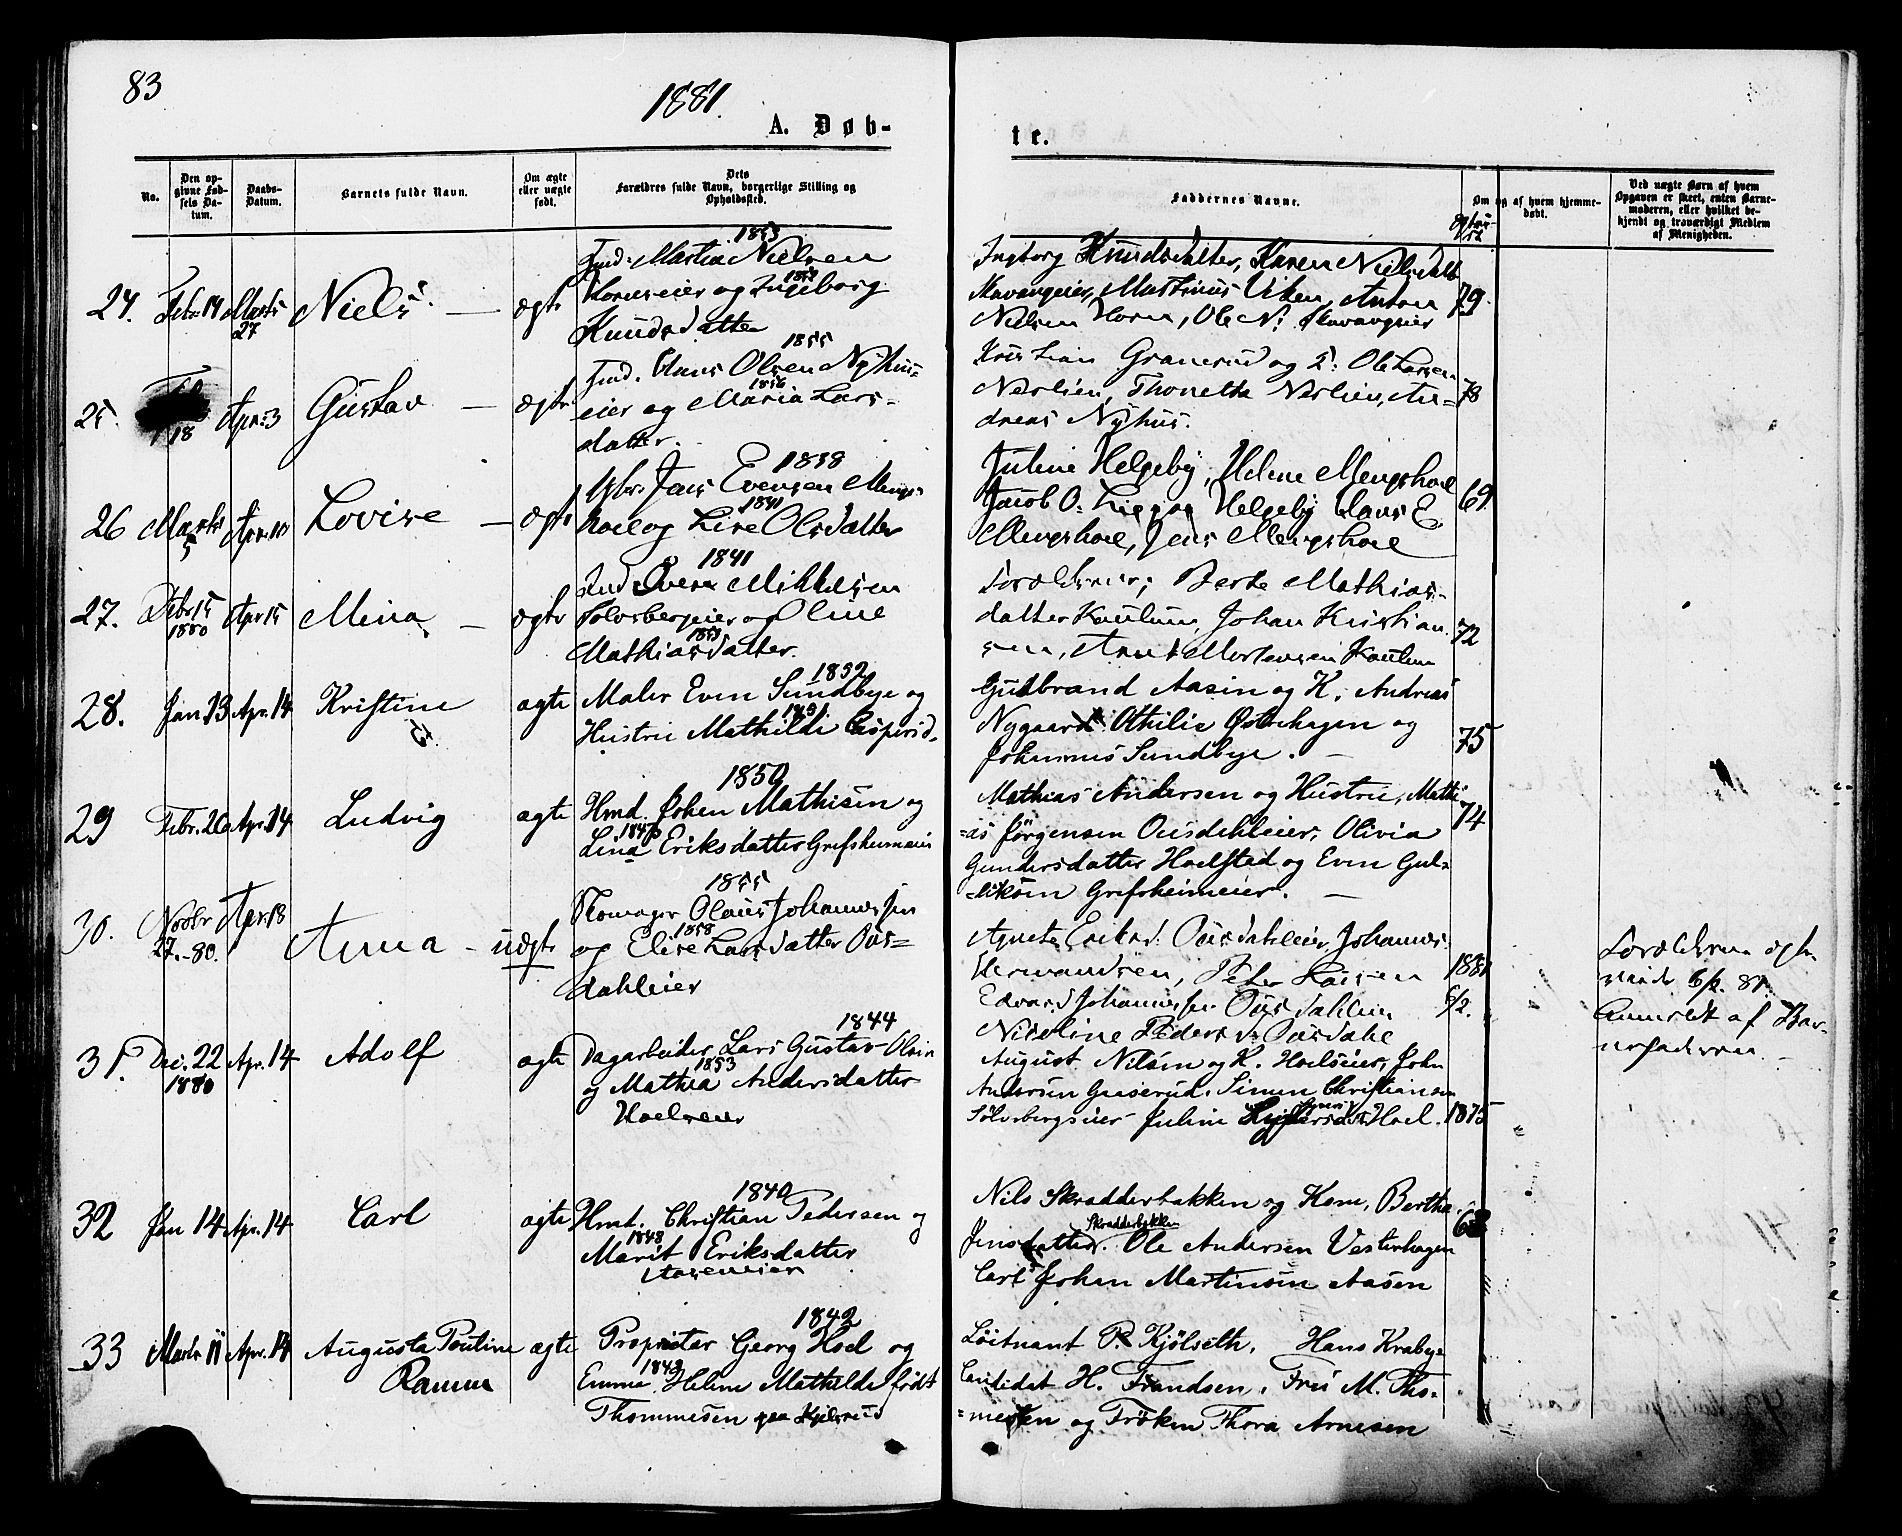 83
1881.
A. Døb-
te.
No.
Den op-
givne Fød-
sels Da-
tum.
Daabs-
Datum.
Barnets fulde Navn.
Om ægte
eller uægte
født.
Dets
Forældres fulde Navn, borgerlige Stilling og
Opholdssted.
Faddernes Navne.
Om og af hvem hjemme-
døbt.
Ved uægte Børn af hvem
Opgaven er skeet, enten Barne-
moderen, eller hvilket be-
kjendt og troværdigt Medlem
af Menigheden.
24. Febr 14 Marts
27
Niels — ægte
1853
Ind: Martin Nielsen
Horneneier og Ingeborg
Knudsdatter
Ingborg Knudsdatter, Karen Nielsdatt
Skavangeier, Martinus Viken, Anton
Nielsen Horn, Ole N. Skavangeier
79.
25. 18 Apr: 3 Gustav — ægte
1855
Ind. Hans Olsen Nyhus-
1856
eier og Maria Lars-
datter.
Kristian Granerud og H: Ole Larsen
Nerlien, Thonetta Nerlien, An-
dreas Nyhus.
78
26 Marts
5
Apr. 10 Lovise — ægte
1838
Gbr. Jens Evensen Mengs-
1841
hoel og Lise Olsdatter
Juline Helgeby, Helene Mengshoel
Jacob O. Helgeby Hans E.
Mengshoel, Jens Mengshoel
69
27. Febr 15
1880
Apr 15 Mina — ægte
1841
Ind Even Mikkelsen
Solvbergeier og Oline
Mathiasdatter.
Forældrene, Berte Mathias-
datter Kaulum, Johan Kristian-
sen, Arne Mortensen Kaulum
72
28. Jan. 13 Apr. 14 Kristine ægte
1852
Maler Even Sundbye og
Hustru Mathilde Caspersd.
Gulbrand Aasen og K, Andreas
Nygaard Othilie Østehagen og
Johannes Sundbye. —
75
29 Febr. 26 Apr. 14 Ludvig ægte
1850
Hmd. Johan Mathisen og
Lina Eriksdatter Grefsheimeier
Mathias Andersen og Hustru, Mathi-
=as Jørgensen Ousdahleier, Olivia
Gundersdatter Hoelstad og Even Gul-
=liksen Grefsheimeier. —
74
30. Novbr
27.-80.
Apr. 18
Anna — uægte
1855
Skomager Olaus Johannessen
1858
og Elise Larsdatter Ous=
dahleier
Agnete Eriksd. Ousdahleier, Johannes
Hermandsen, Peter Larsen
Edvard Johannessen Ousdahlen
Nicoline Pedersd. Ousdahl
1881
6/2.
Forældrene ægte-
viede 6/2. 81.
Anmeldt af Bar-
nefaderen. —
31. Dec. 22
1880
Apr. 14 Adolf ægte
1844
Dagarbeider Lars Gustav Olsen
1853
og Mathea Andersdatter
Hoelseier
August Nilsen og K. Hoelseier, John
Andersen Gaaserud, Simen Christiansen
Sölvbergseier Juline Hoel.
1875
32 Jan 14 Apr. 14 Carl ægte
1840
Hmd. Christian Pedersen og
1848
Marit Eriksdatter
Aaseneier
Nils Skradderbakken og Kone, Berthe
Skradderbakken
Jensdatter. Ole Andersen Vesterhagen
Carl Johan Martinsen Aasen
68
33 Marts 11 Apr. 14 Augusta Pouline
Ramm
ægte
1842
Proprietær Georg Hoel og
1843
Emma Helene Mathilde født
Thommesen paa Kjelsrud
Löitnant P. Kjölseth. Hans Krabye
Candidat H. Frandsen. Fru M. Tho-
=mesen og Fröken Thora Arnesen